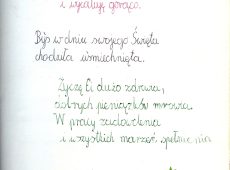 i wycałuję gorąco.
Byś w dniu swojego Święta
chodziła uśmiechnięta.
Życzę Ci dużo zdrowia,
dobrych pieniążków mrowia.
W pracy zadowolenia
i wszystkich marzeń spełnienia